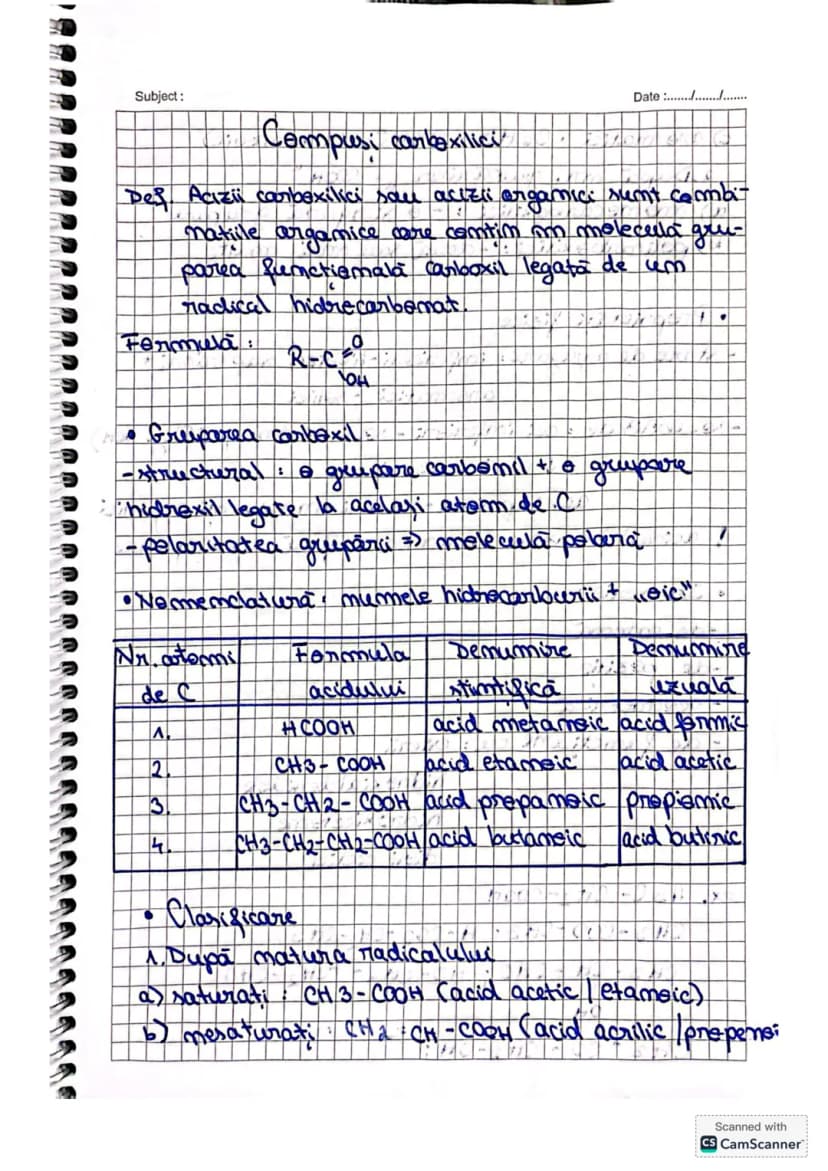 Subject :
Date :......./......./.......
Compuși carboxilici
Def. Acizii carboxilici sau acizii organici sunt combi-
națiile organice care conțin în moleculă gru-
parea funcțională carboxil legată de un
radical hidrocarbonat.
Formulă :
R-C=O
\OH
• Gruparea carboxil
-structural : o grupare carbonil + o grupare
hidroxil legate la același atom de C
-polaritatea grupării => moleculă polară !
•Nomenclatură: numele hidrocarburii + „oic"
Nr. atomi Formula Denumire Denumire
de C acidului științifică uzuală
1. HCOOH acid metanoic acid formic
2. CH3-COOH acid etanoic acid acetic
3. CH3-CH2-COOH acid propanoic propionic
4. CH3-CH2-CH2-COOH acid butanoic acid butiric
• Clasificare
1. După natura radicalului
a) saturați : CH3-COOH (acid acetic / etanoic)
b) nesaturați : CH2 : CH-COOH (acid acrilic / propenoi
Scanned with
CS CamScanner